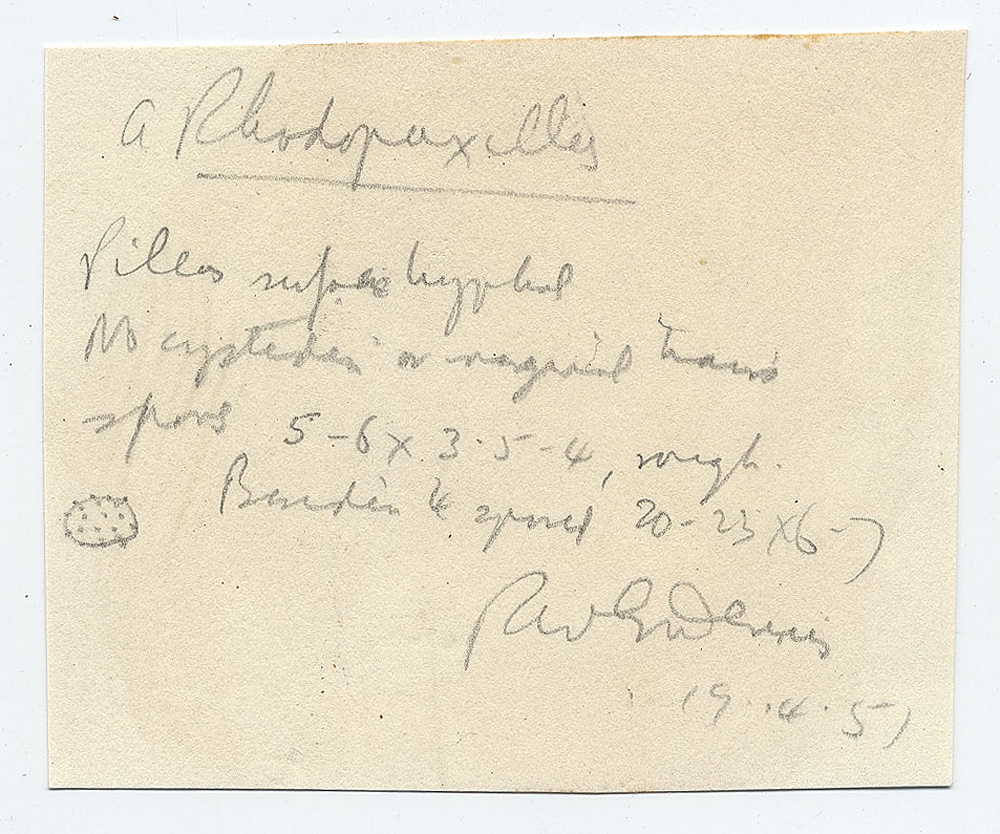 a Rhodopaxillus
Pileus surface hyphal
No cystidia or marginal hairs
spores 5-6 x 3.5-4, rough.
Basidia 4 spored 20-23 x 6-7
RWG Dennis
19.4.57